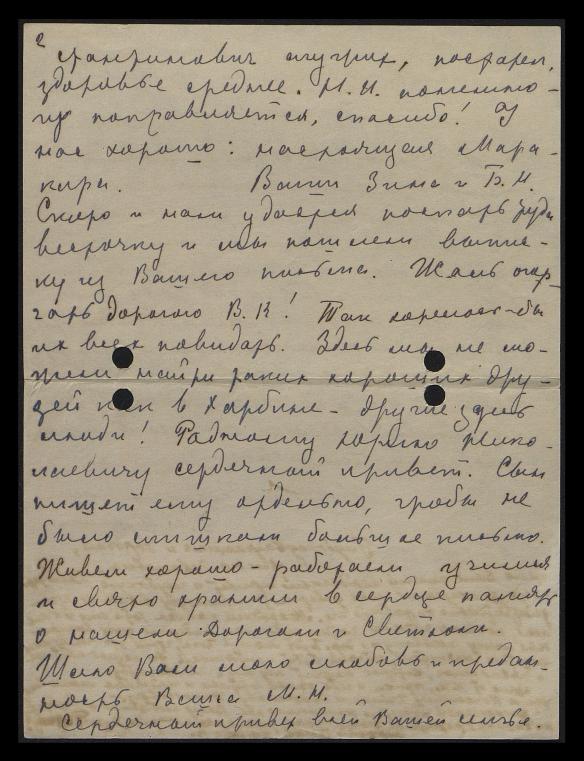 2
стантинович глух, постарел,
здоровье среднее. Н. И. понемно-
гу поправляется, спасибо! У
нас хорошо: настоящая Мара-
кира. Ваши Зина и Б. Н.
Скоро и нам удастся послать
весточку и мы пошлем выпис-
ку из Вашего письма. Жаль
дорогого В. К! Так хотелось-бы
их всех повидать. Здесь мы не мо-
жем найти таких хороших дру-
зей как в Харбине - другие здесь
люди! Родному Нико-
лаевичу сердечный привет. Сын
пишет ему отдельно, чтобы не
было слишком большое письмо.
Живем хорошо - работаем учимся
и свято храним в сердце память
о нашем Дорогом и Светлом.
Шлю Вам мою любовь и предан-
ность Ваша М. Н.
Сердечный привет всей Вашей семье.